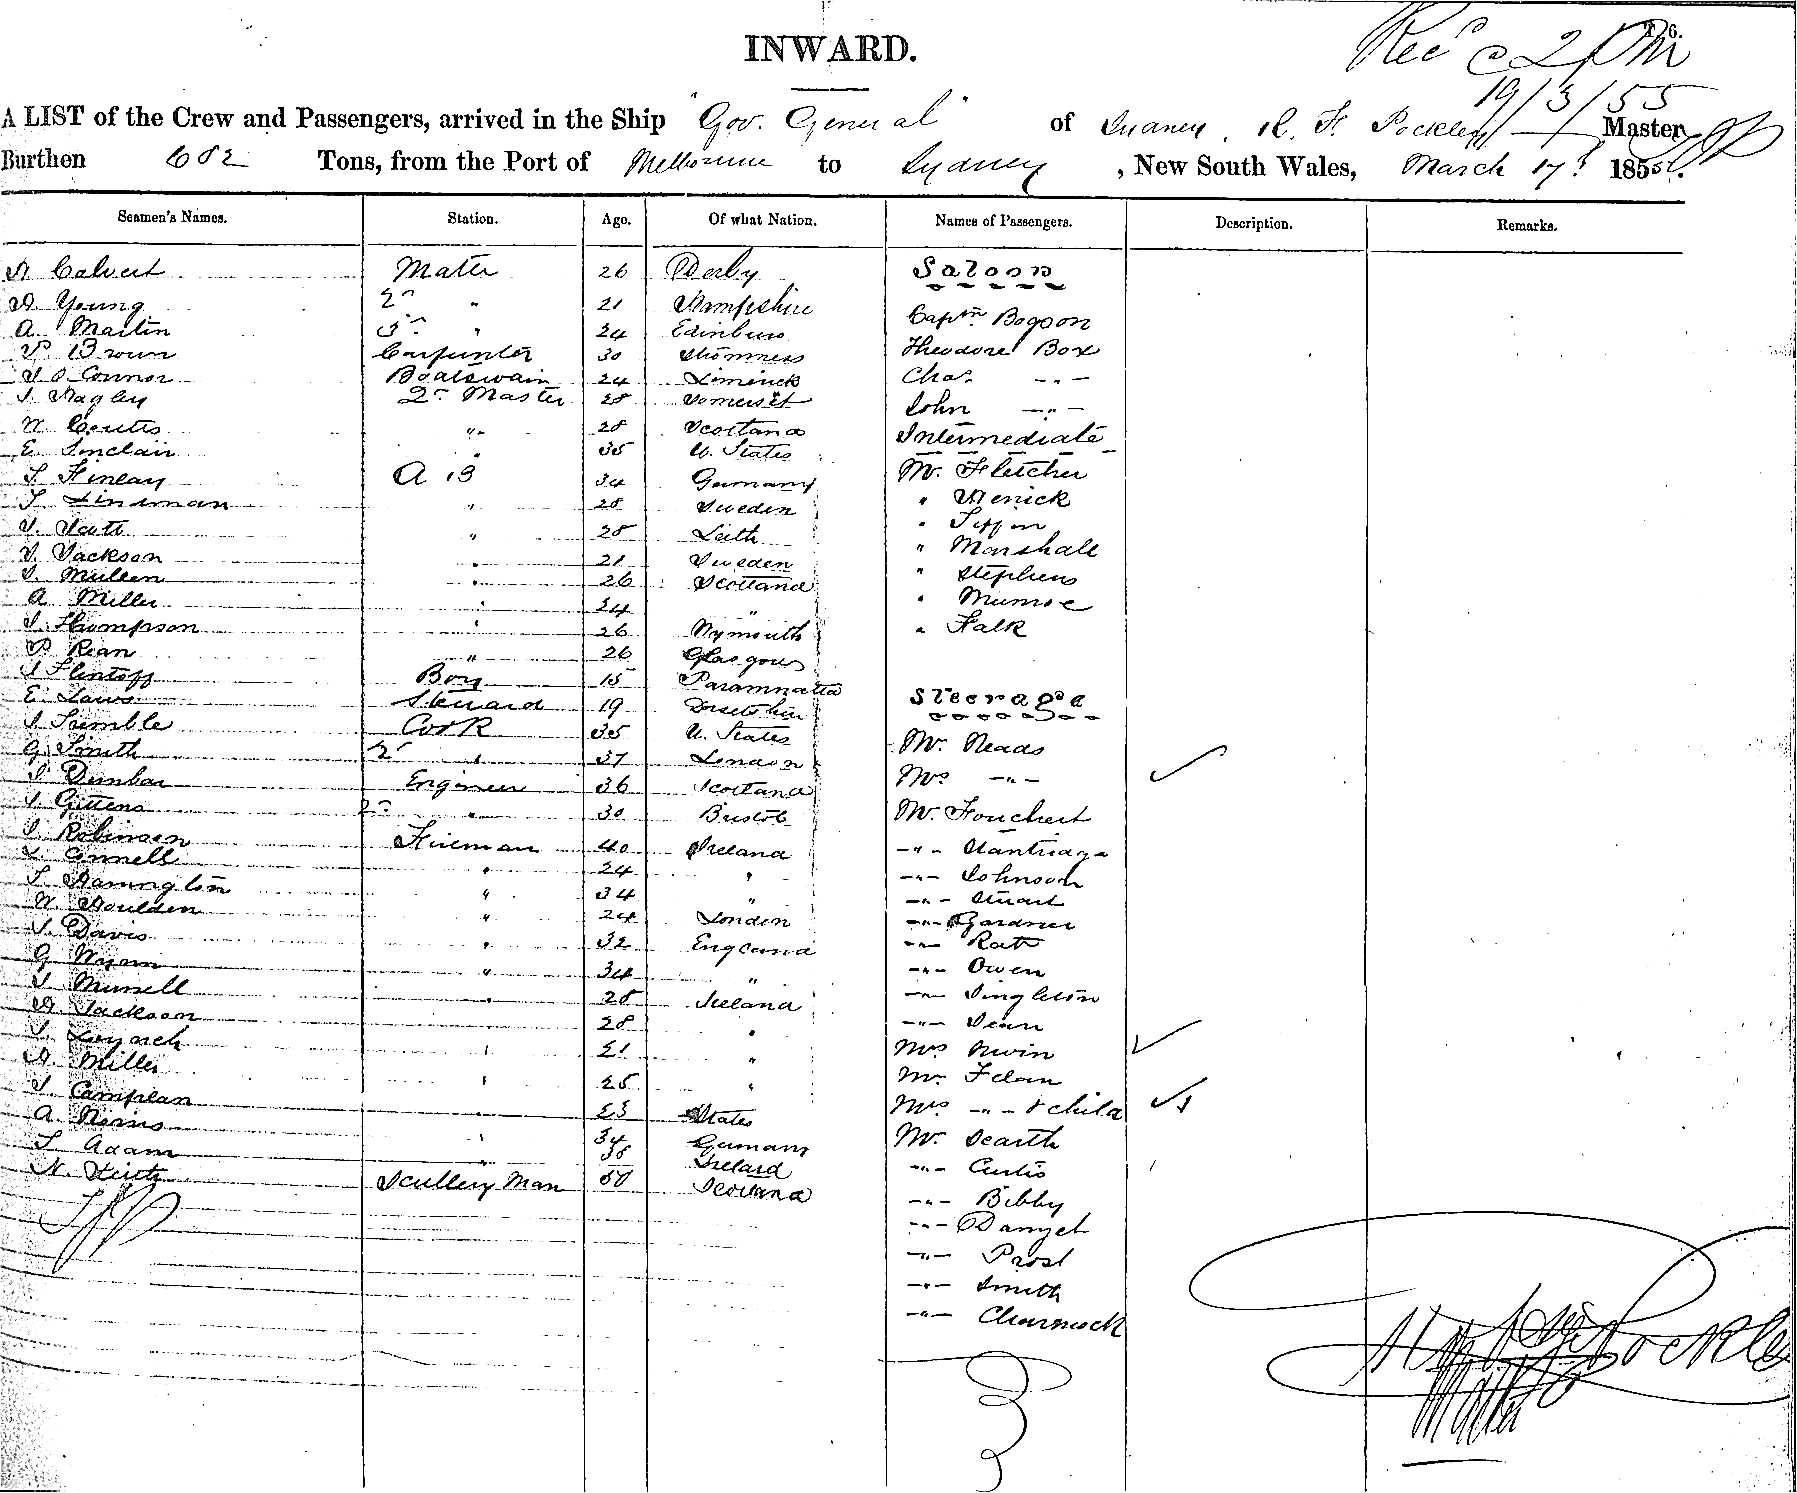 INWARD.
T 6.
Rec'd @ 2 PM
19/3/55
A LIST of the Crew and Passengers, arrived in the Ship "Gov. General" of Sydney, R. F. Pockley Master
Burthen 682 Tons, from the Port of Melbourne to Sydney, New South Wales, March 17th 1855.
Seamen's Names. Station. Age. Of what Nation. Names of Passengers. Description. Remarks.
Calvert Mate 26 Derby
Young 2nd " 21 Hampshire
A. Martin 3rd " 24 Edinburo
Brown Carpenter 30 Stromness
O'Connor Boatswain 24 Limerick
Nagley 2nd Master 28 Somerset
Coutts " 28 Scotland
E. Sinclair 35 U. States
Finlay A B 34 Germany
Lindman " 28 Sweden
Scott " 28 Leith
Jackson " 21 Sweden
Mullen " 26 Scotland
A. Miller " 24 "
Thompson " 26 Wymouth
Rian " 26 Glasgow
Flintoff Boy 15 Paramnatta
E. Laws Steuard 19 Dorsetshire
Tremble Cook 35 U. States
G. Smith 2nd " 37 London
Dunbar Engineer 36 Scotland
Gittens 2nd " 30 Bristol
Robinson Fireman 40 Ireland
Connell " 24 "
Harrington " 34 "
Houlden " 24 London
Davis " 32 England
G. " 34 "
Munell " 28 Ireland
Jackson 28 "
Loynch " 21 "
Miller " 25 "
Camplan 23 States
A. Norris " 34 German
Adam " 38 Ireland
Scullery Man 50 Scotland
Saloon
Captn Bogson
Theodore Box
Chas. -"-
John -"-
Intermediate
Mr. Fletcher
" Menick
" Tippin
" Marshall
" Stephens
" Munroe
" Falk
Steerage
Mr. Neads
Mrs -"-
Mr. Fouchert
-"-
-"- Johnson
-"- Stuart
-"- Gardner
-"- Rat
-"- Owen
-"- Singleton
-"- Dean
Mrs Irwin
Mr. Felan
Mrs -"- & child
Mr. Scarth
-"- Curtis
-"- Bibby
-"- Danzel
-"- Prost
-"- Smith
-"- Charnock
Pockley
Master